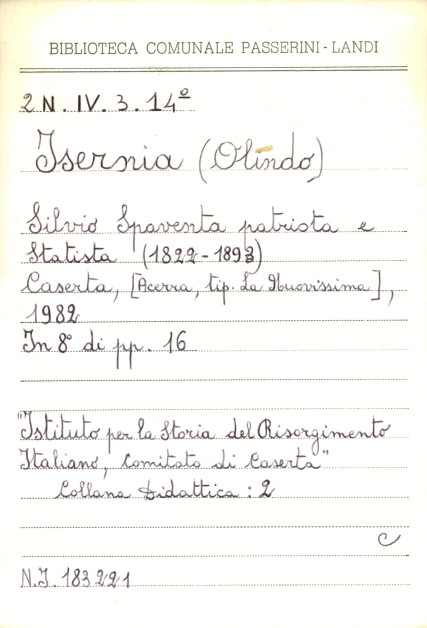 BIBLIOTECA COMUNALE PASSERINI - LANDI
2 N. IV. 3. 14º
Isernia (Olindo)
Silvio Spaventa patriota e
Statista (1822-1893)
Caserta, [Acerra, tip. La Nuovissima],
1982
In 8º di pp. 16
"Istituto per la Storia del Risorgimento
Italiano, Comitato di Caserta"
Collana Didattica : 2
C
N.I. 183221